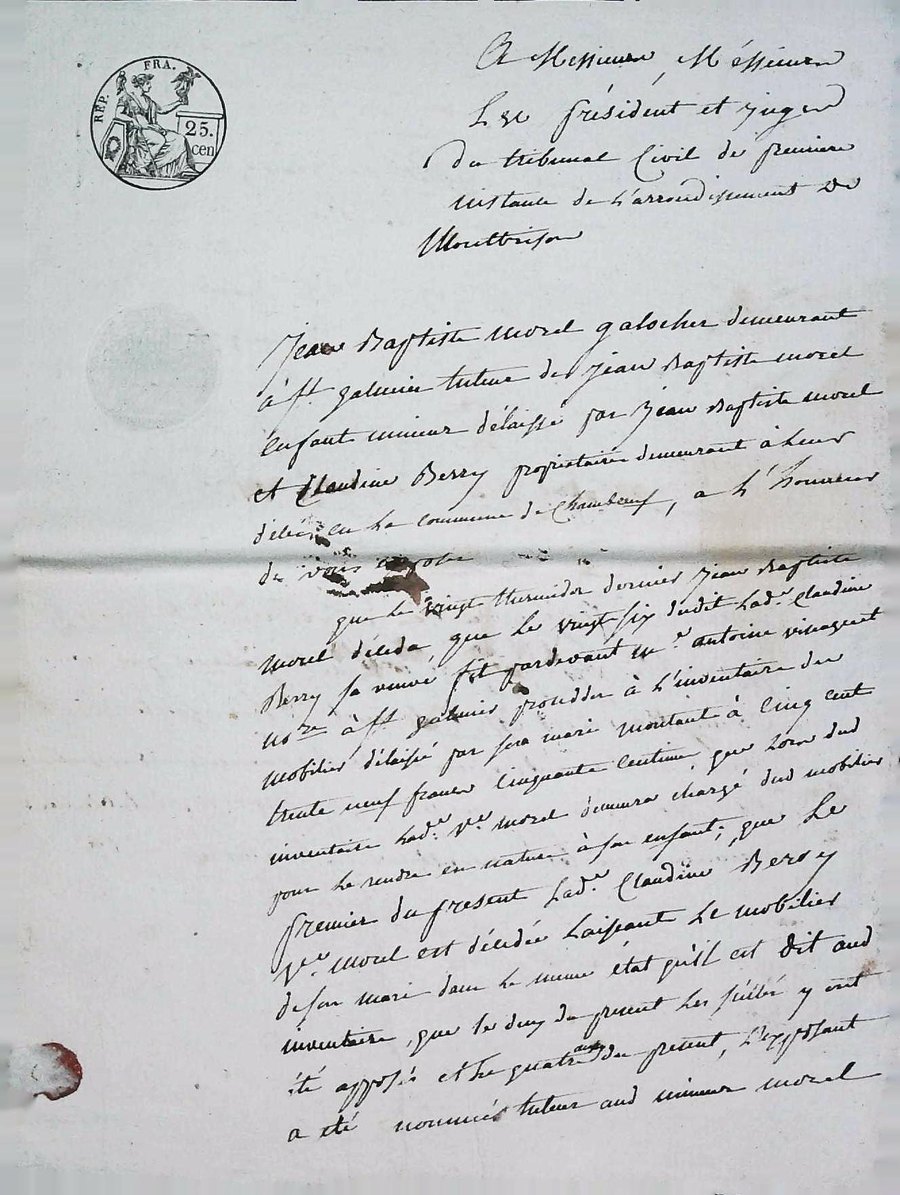 RÉP. FRA.
25.
cen
A Messieurs, Méssieurs
Les président et juges
du tribunal Civil de premiere
instance de L'arrondissement de
Montbrison
Jean Baptiste morel galocher demeurant
à st galmier tuteur de jean Baptiste morel
enfant mineur délaissé par jean Baptiste morel
et Claudine Berry propriétaire demeurant à Leur
décès en La commune de Chambeuf, a L'honneur
de vous
que Le vingt thermidor dernier jean Baptiste
morel déceda que Le vingt six dudit Lade. Claudine
Berry sa veuve fit pardevant me antoine
nore à st galmier proceder à L'inventaire du
mobilier délaissé par son mari montant à Cinq cent
trente neuf francs Cinquante Centimes, que Lors dud
inventaire Lade. ve. morel demeura chargé dud mobilier
pour Le rendre en nature à son enfant; que Le
premier du present Lade. Claudine Berry
ve. morel est décédée Laissant Le mobilier
de son mari dans Le meme état qu'il est dit aud
inventaire, que le deux du present Les scéllés y ont
été apposés et Le quatre aussi du present, L'exposant
a été nommé tuteur aud mineur morel